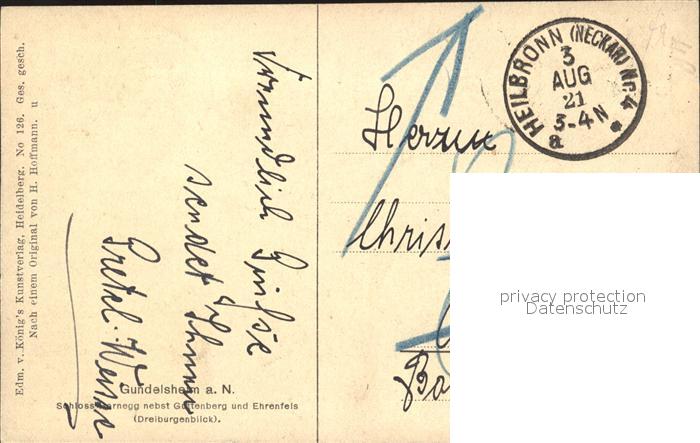 Edm. v. König's Kunstverlag, Heidelberg. No 126. Ges. gesch.
Nach einem Original von H. Hoffmann. u
Freundliche Grüße
sendet Ihnen
Gretel
Gundelsheim a. N.
Schloss Hornegg nebst Guttenberg und Ehrenfels
(Dreiburgenblick).
HEILBRONN (NECKAR) Nr. 4
3
AUG
21
3-4 N
a
Herrn
privacy protection
Datenschutz